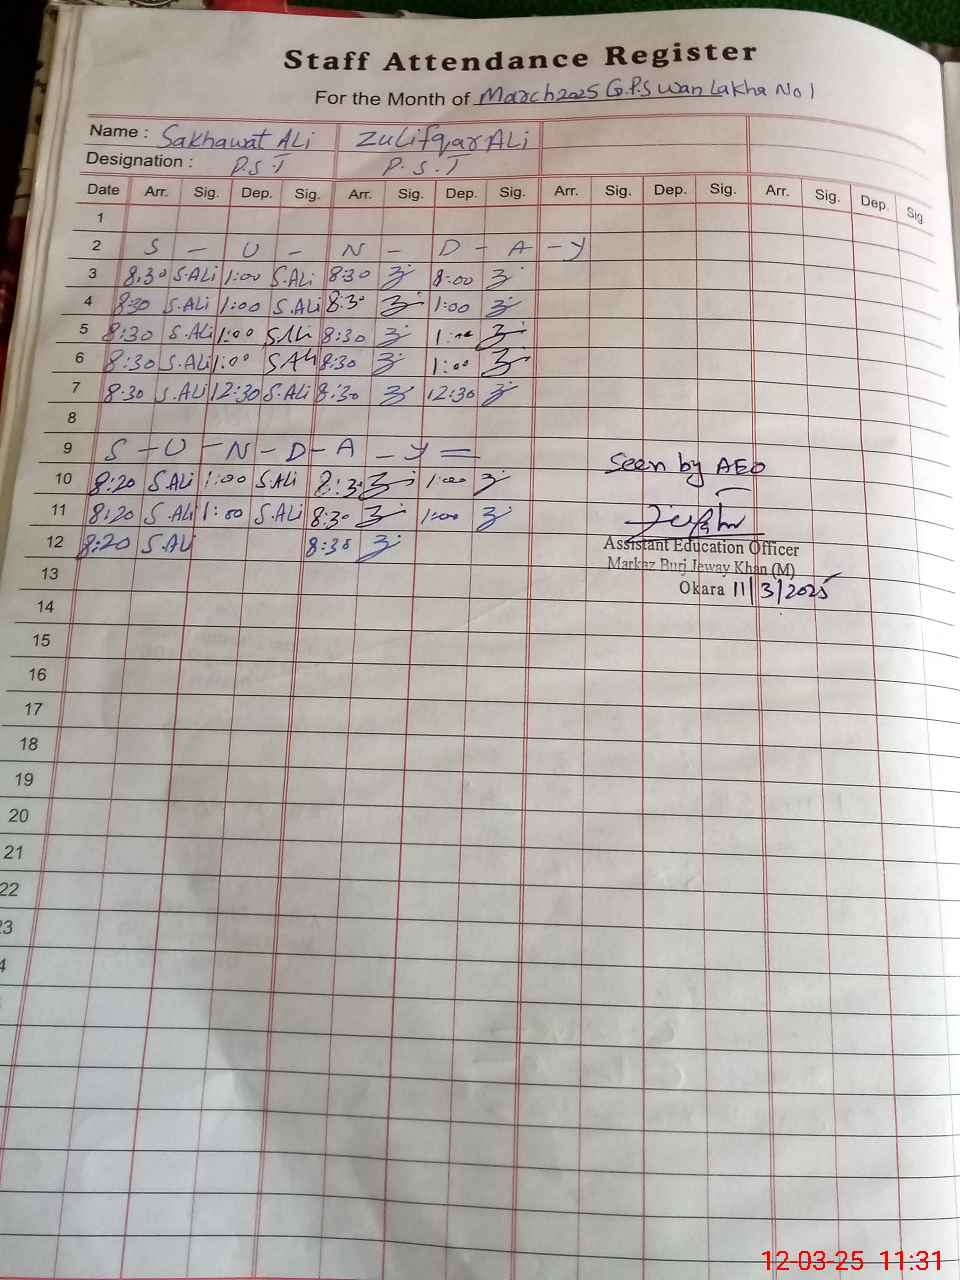 Staff Attendance Register
For the Month of March 2025 G.P.S Wan Lakha No 1
Name : Sakhawat ALi ZuLifqar ALi
Designation : P.S.T P.S.T
Date Arr. Sig. Dep. Sig. Arr. Sig. Dep. Sig. Arr. Sig. Dep. Sig. Arr. Sig. Dep. Sig.
1
2 S - U - N - D - A - Y
3 8:30 S.ALi 1:00 S.ALi 8:30 8:00
4 8:30 S.ALi 1:00 S.ALi 8:30 1:00
5 8:30 S.ALi 1:00 S.ALi 8:30 1:00
6 8:30 S.ALi 1:00 S.ALi 8:30 1:00
7 8:30 S.ALi 12:30 S.ALi 8:30 12:30
8
9 S - U - N - D - A - Y =
Seen by AEO
10 8:20 S.ALi 1:00 S.ALi 8:30 1:00
11 8:20 S.ALi 1:00 S.ALi 8:30 1:00
12 8:20 S.ALi 8:30
Assistant Education Officer
Markaz Burj Jeway Khan (M)
Okara 11/3/2025
13
14
15
16
17
18
19
20
21
22
23
4
12-03-25 11:31